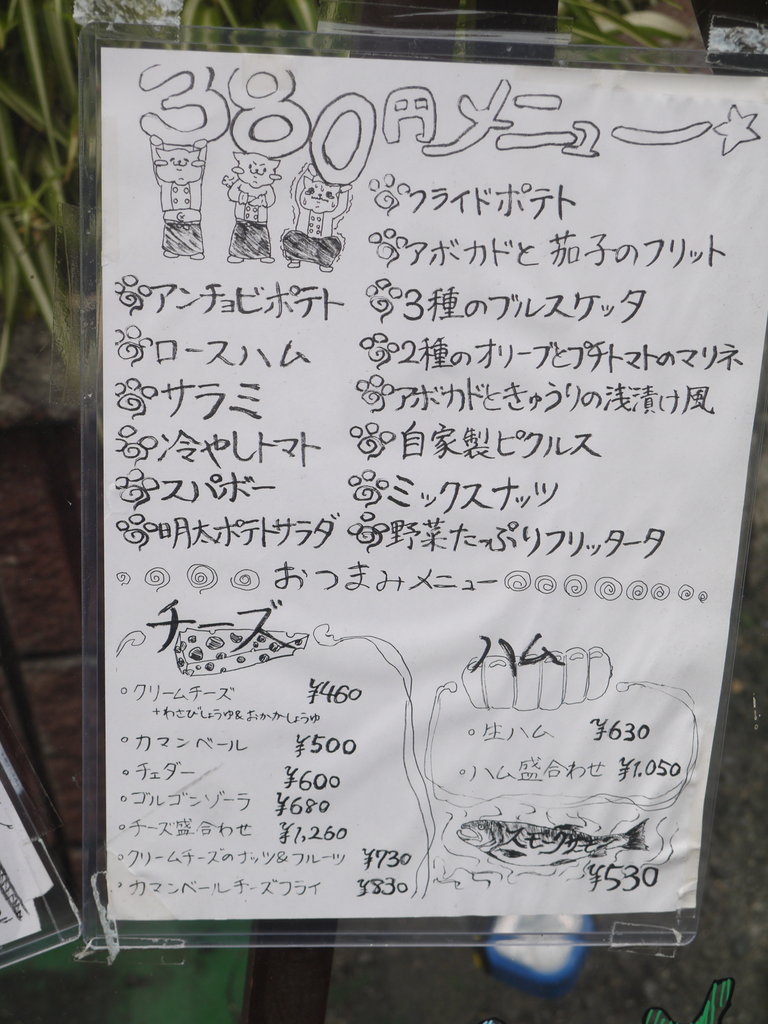 380円メニュー☆
フライドポテト
アボカドと茄子のフリット
アンチョビポテト
3種のブルスケッタ
ロースハム
2種のオリーブとプチトマトのマリネ
サラミ
アボカドときゅうりの浅漬け風
冷やしトマト
自家製ピクルス
スパボー
ミックスナッツ
明太ポテトサラダ
野菜たっぷりフリッタータ
おつまみメニュー
チーズ
・クリームチーズ ¥460
+わさびしょうゆ&おかかしょうゆ
・カマンベール ¥500
・チェダー ¥600
・ゴルゴンゾーラ ¥680
・チーズ盛合わせ ¥1,260
・クリームチーズのナッツ&フルーツ ¥730
・カマンベールチーズフライ ¥830
ハム
・生ハム ¥630
・ハム盛合わせ ¥1,050
スモークサーモン
¥530